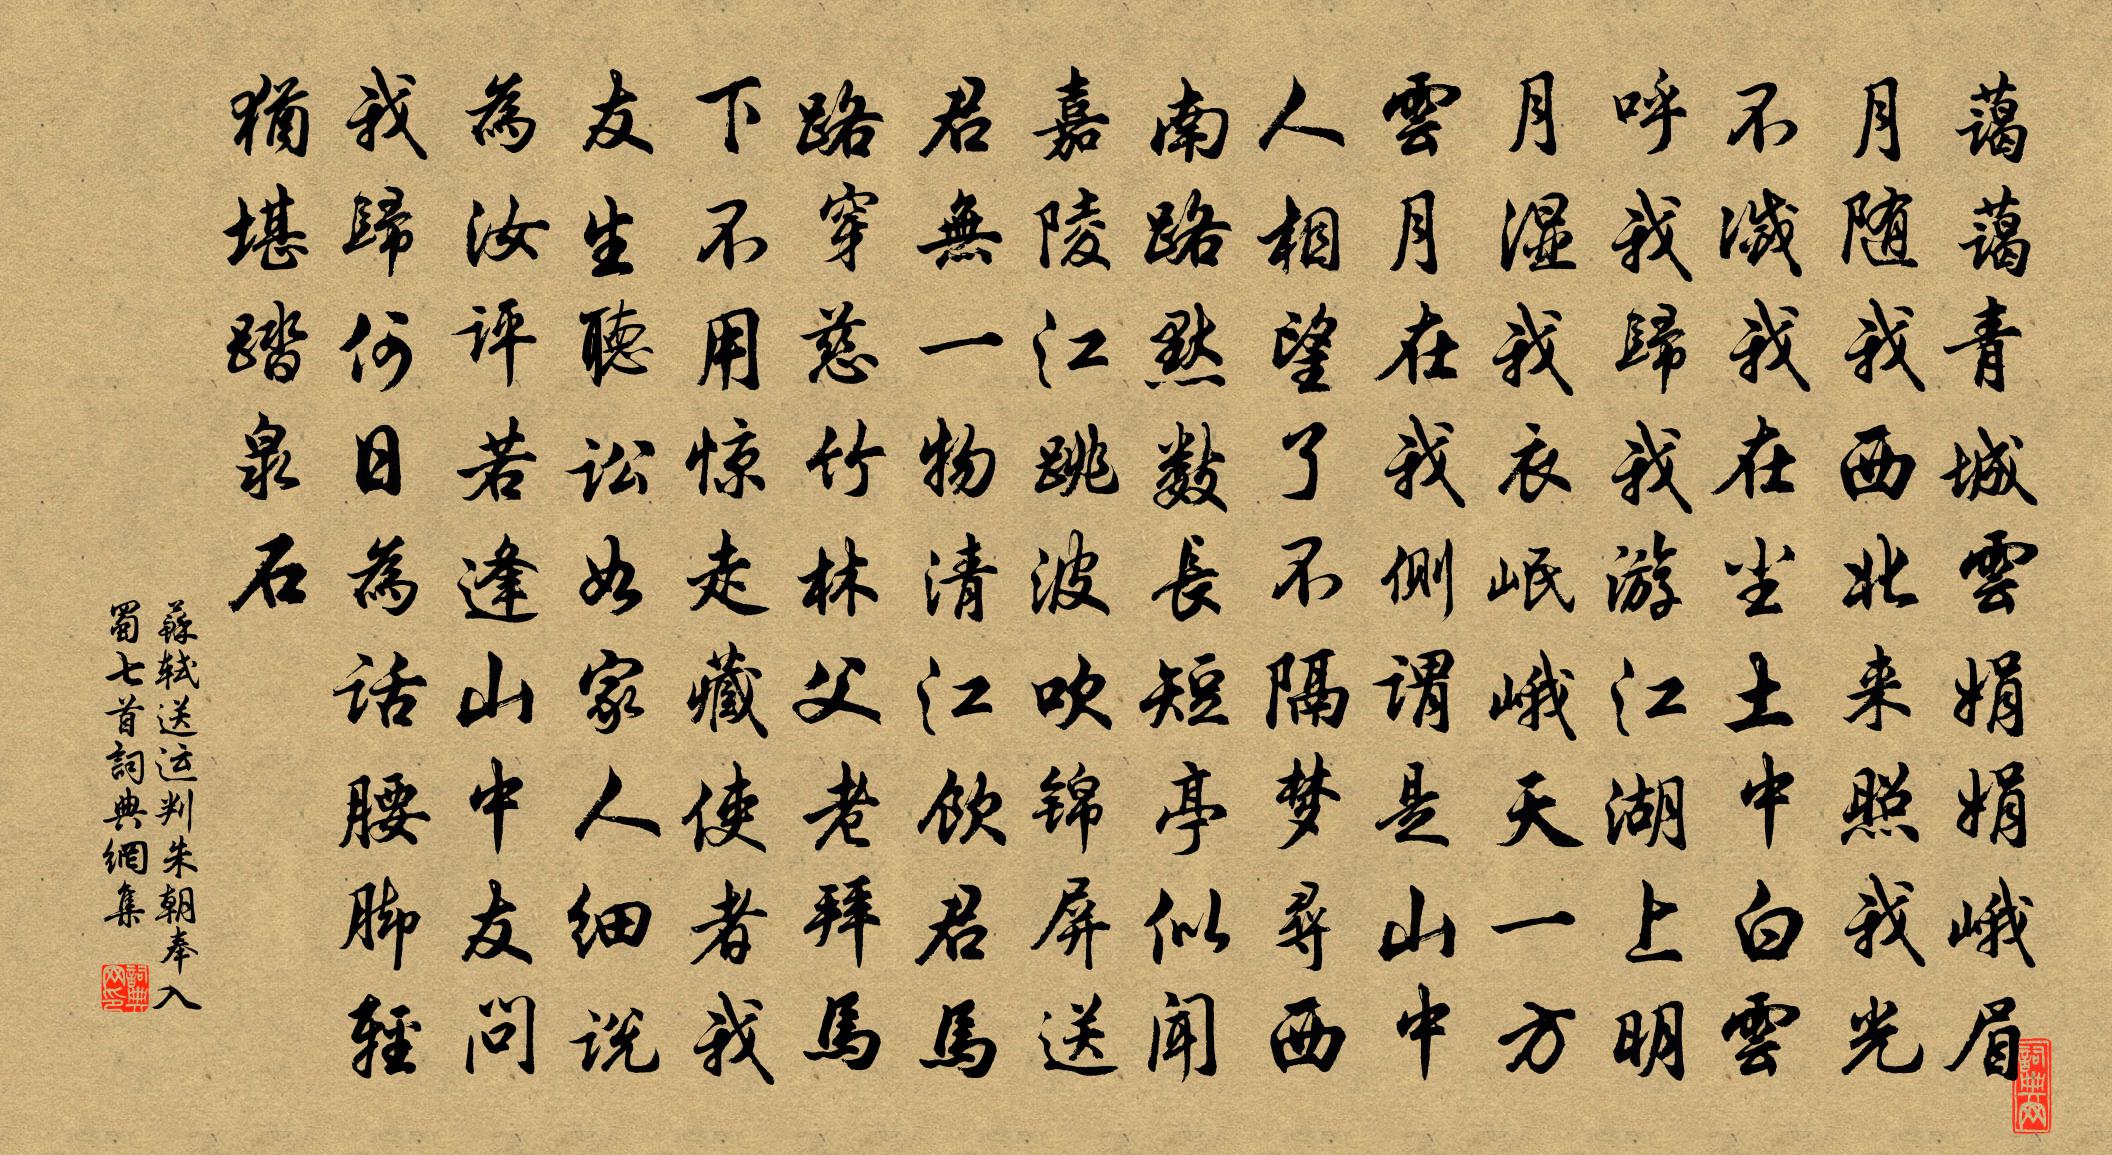 藹藹青城雲娟娟峨眉
月随我西北来照我光
不滅我在尘土中白雲
呼我歸我游江湖上明
月湿我衣岷峨天一方
雲月在我侧謂是山中
人相望了不隔梦尋西
南路黙数長短亭似闻
嘉陵江跳波吹锦屏送
君無一物清江飲君馬
路穿慈竹林父老拜馬
下不用惊走藏使者我
友生聽讼如家人细说
為汝評若逢山中友问
我歸何日為話腰脚輕
猶堪踏泉石
蘇軾送运判朱朝奉入
蜀七首詞典網集
詞典网
詞典网印